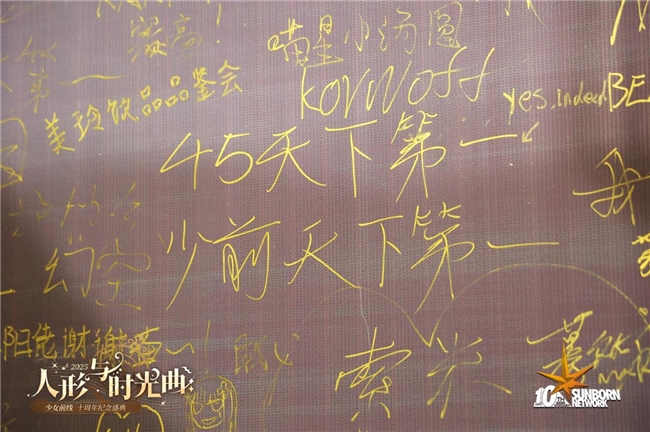 最高!
第一
喵星小汤圆
KOrWOff
美玲饮品品鉴会
yes, indeed
BE
45天下第一
我
少前天下第一
幻空
阳佬谢谢喵
索米
2025
人形与时光曲
少女前线 十周年纪念盛典
10
SUNBORN
NETWORK